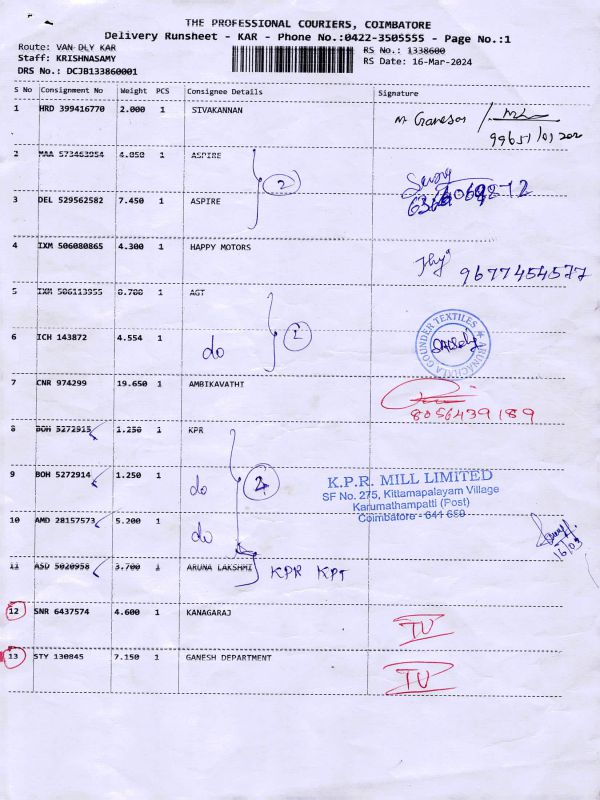 THE PROFESSIONAL COURIERS, COIMBATORE
Delivery Runsheet - KAR - Phone No.:0422-3505555 - Page No.:1
Route: VAN DLY KAR RS No.: 1338600
Staff: KRISHNASAMY RS Date: 16-Mar-2024
DRS No.: DCJB133860001
S No Consignment No Weight PCS Consignee Details Signature
1 HRD 399416770 2.000 1 SIVAKANNAN M Ganesan
2 MAA 573463954 4.050 1 ASPIRE
2
3 DEL 529562582 7.450 1 ASPIRE
4 IXM 506080865 4.300 1 HAPPY MOTORS
9677454577
5 IXM 506113955 0.700 1 AGT
2
6 ICH 143872 4.554 1 do
ARUNACHALA GOUNDER TEXTILES
7 CNR 974299 19.650 1 AMBIKAVATHI
8056439189
8 BOH 5272915 1.250 1 KPR
9 BOH 5272914 1.250 1 do
K.P.R. MILL LIMITED
SF No. 275, Kittamapalayam Village
Karumathampatti (Post)
Coimbatore - 641 659
10 AMD 28157573 5.200 1 do
16/03
11 ASD 5020958 3.700 1 ARUNA LAKSHMI KPR KPT
12 SNR 6437574 4.600 1 KANAGARAJ
TU
13 STY 130845 7.150 1 GANESH DEPARTMENT
TU